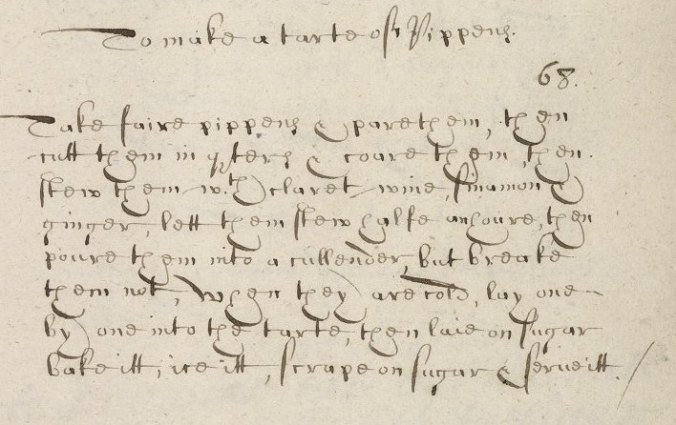 To make a tarte of Pippens.
68.
Take faire pippens & pare them, then
cutt them in qrters & coare them, then
stew them wth claret wine, sinamon &
ginger, lett them stew halfe an houre, then
poure them into a cullender, but breake
them not, when they are cold, lay one
by one into the tarte, then laie on sugar
bake itt, ice itt, scrape on sugar & serue itt.